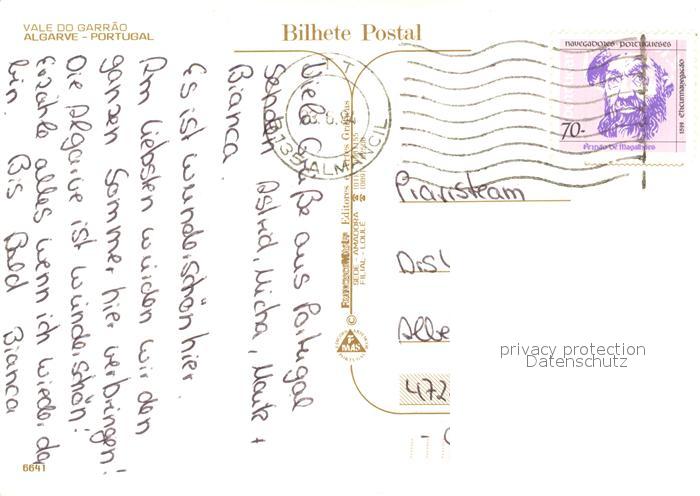 VALE DO GARRÃO
ALGARVE - PORTUGAL
Bilhete Postal
NAVEGADORES PORTUGUESES
70.-
1519 Circumnavegação
Fernão de Magalhães
8135 ALMANCIL
Viele Grüße aus Portugal
senden Astrid, Micha, Maik +
Bianca.
Es ist wunderschön hier.
Am liebsten würden wir den
ganzen Sommer hier verbringen!
Die Algarve ist wunderschön!
Erzähle alles wenn ich wieder da
bin. Bis Bald Bianca
Editores
SEDE - AMADORA
FILIAL - LOULÉ
©
Praxisteam
Albe
472
privacy protection
Datenschutz
6641